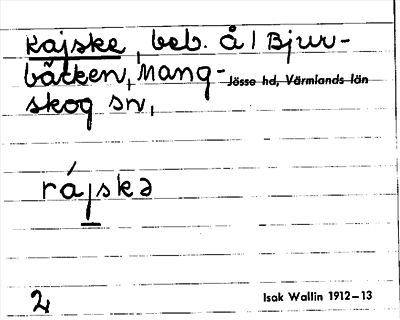 Kajske, beb. å / Bjur-
bäcken, Mang-
Jösse hd, Värmlands län
skog sn,
rájskə
2
Isak Wallin 1912–13